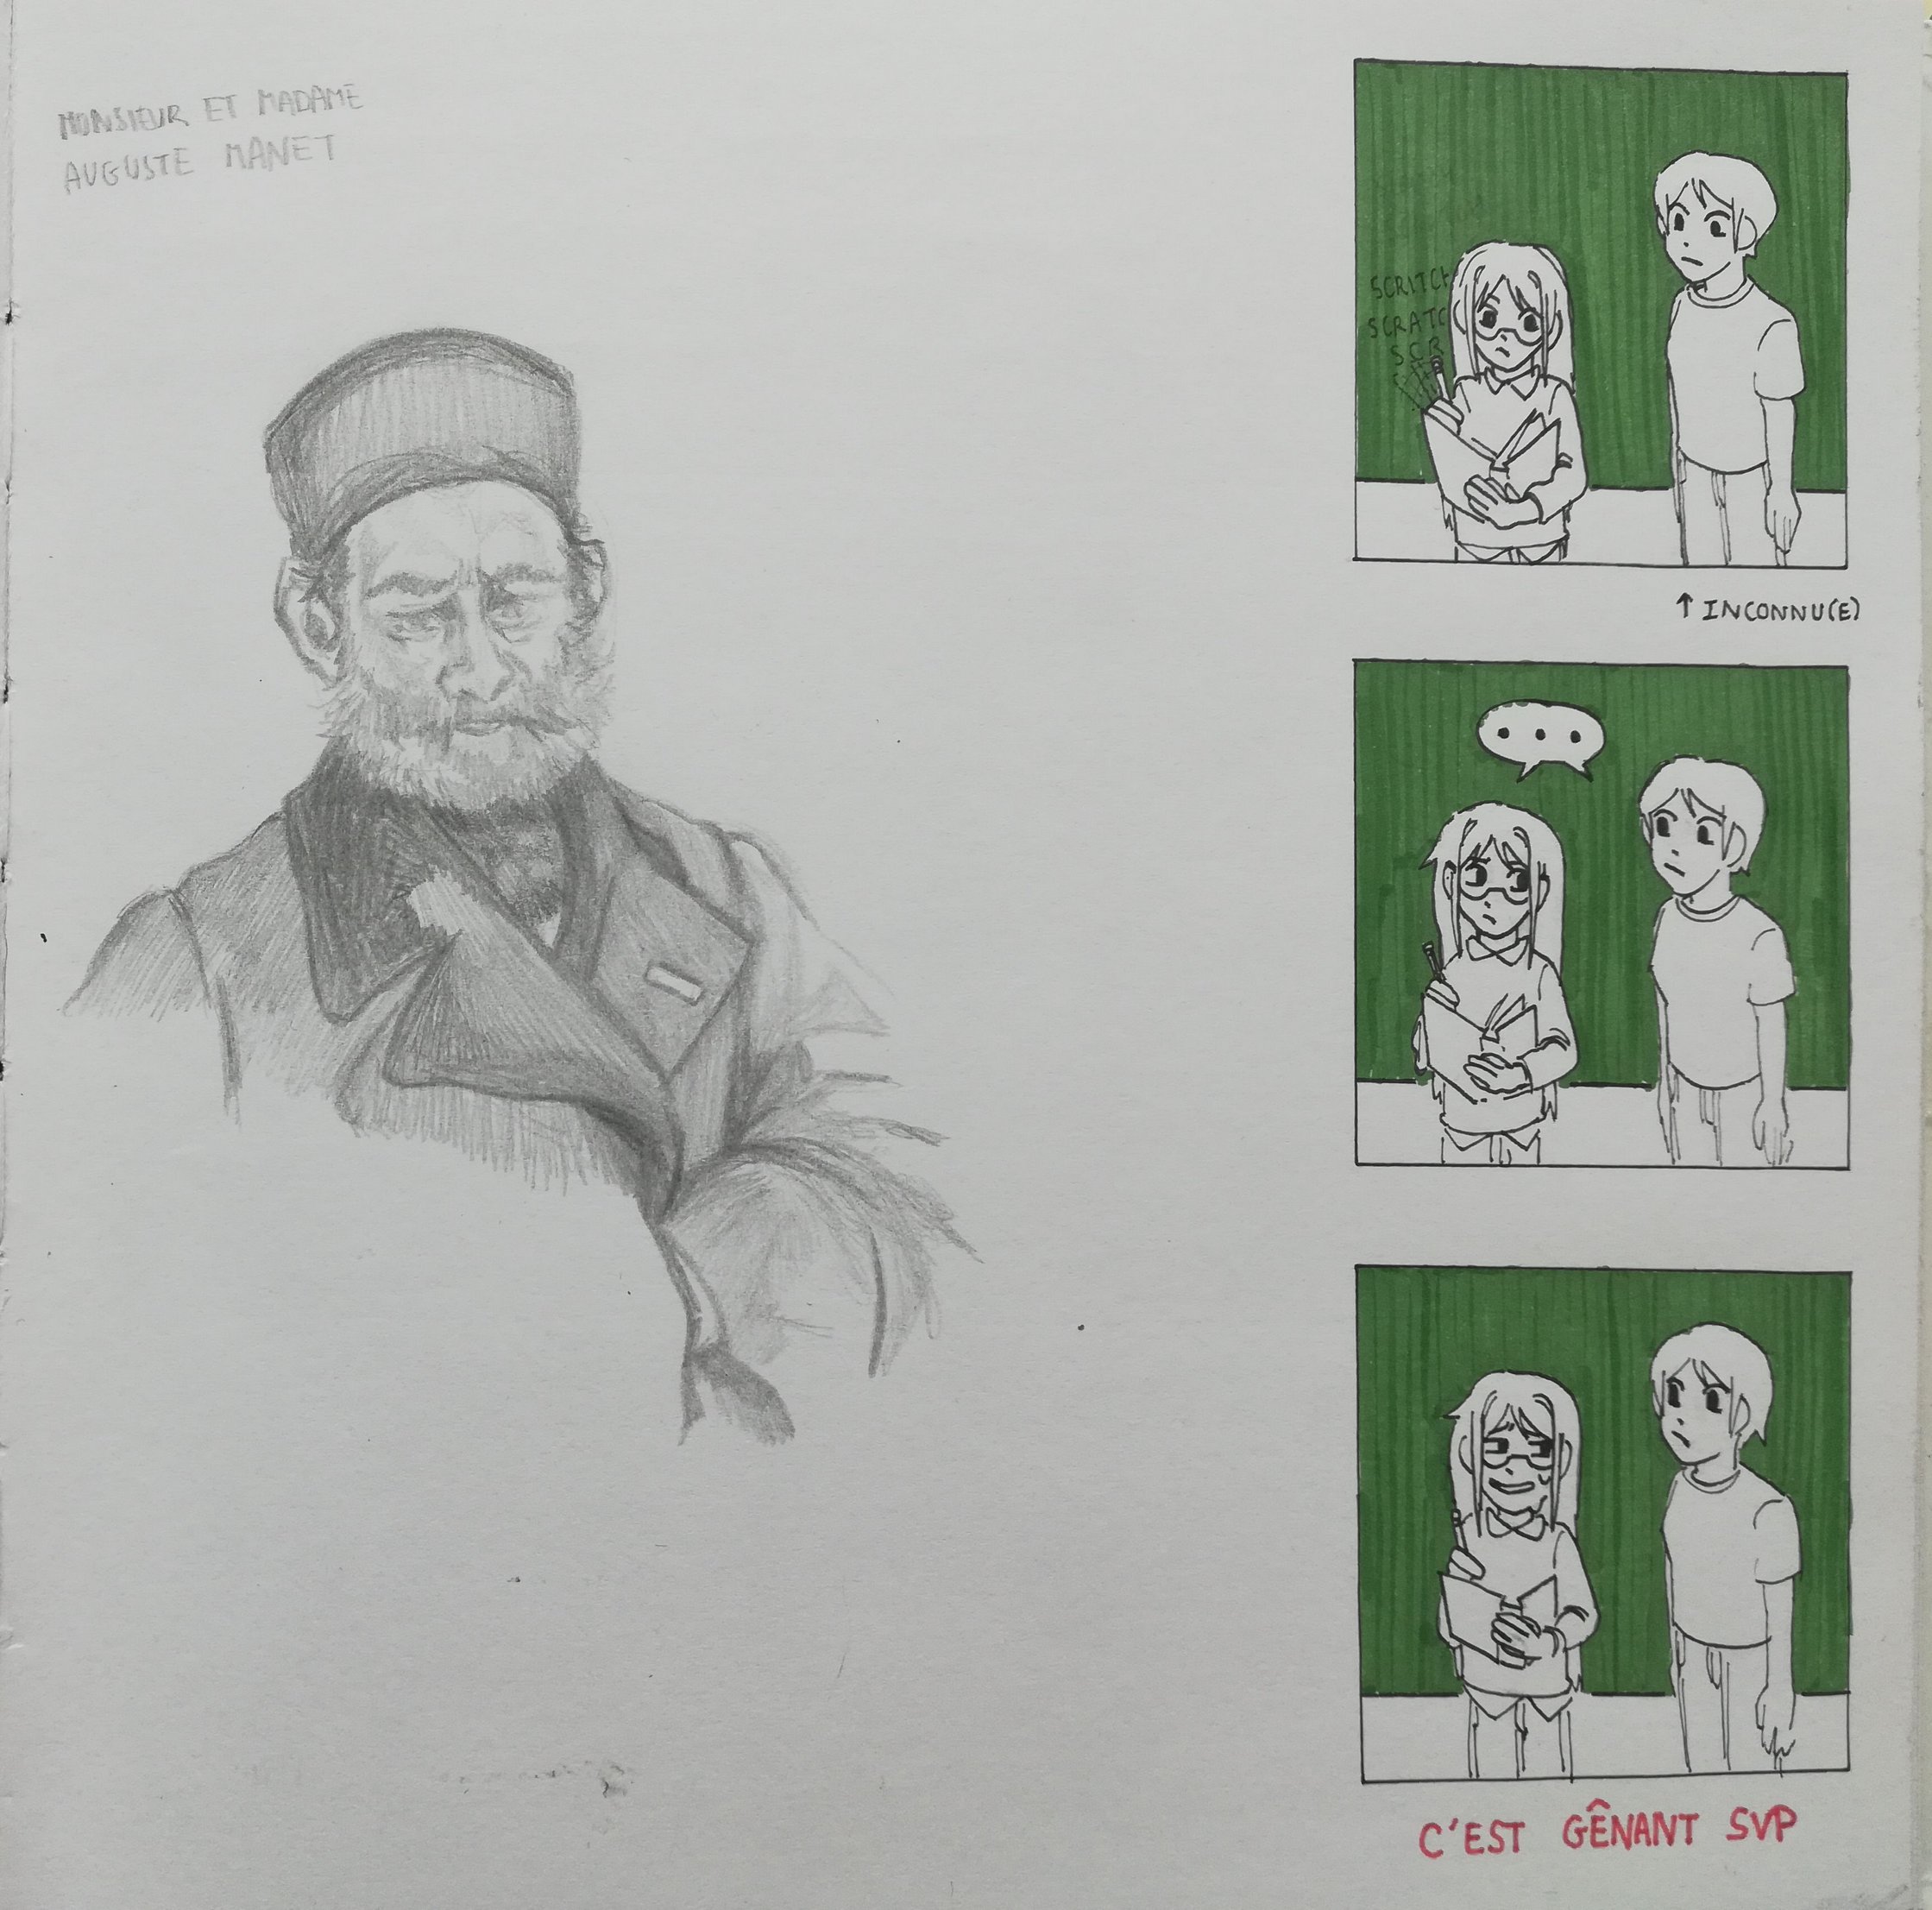 MONSIEUR ET MADAME
AUGUSTE MANET
SCRITCH
SCRATC
SCR
↑ INCONNU(E)
...
C'EST GÊNANT SVP